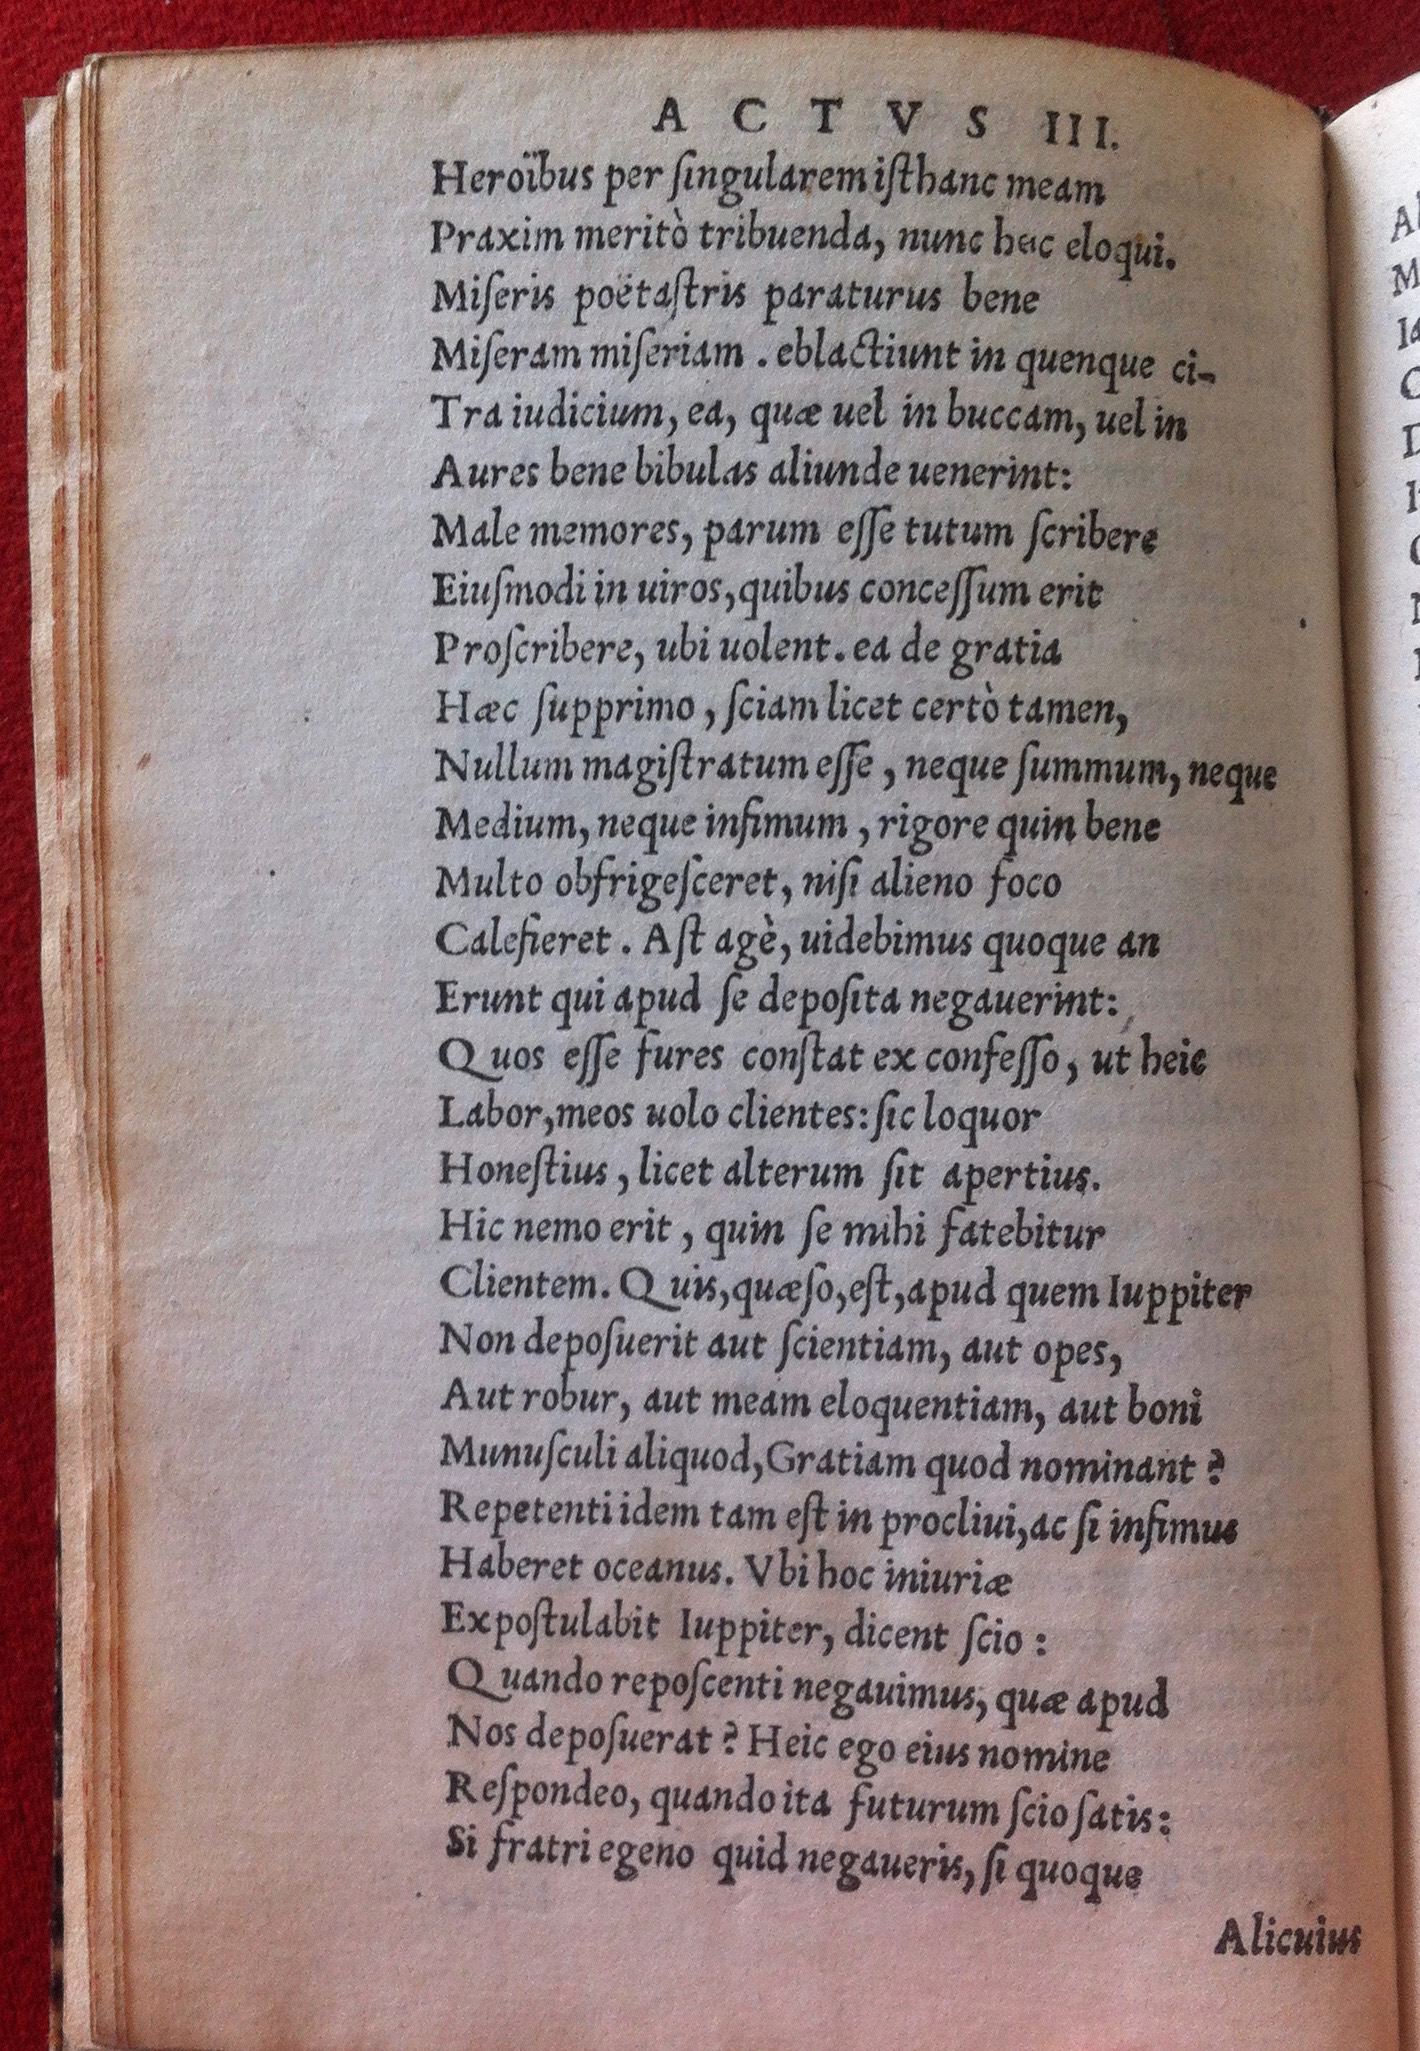 ACTVS III.
Heroïbus per ſingularem iſthanc meam
Praxim meritò tribuenda, nunc hæc eloqui.
Miſeris poëtaſtris paraturus bene
Miſeram miſeriam. eblactiunt in quenque ci-
Tra iudicium, ea, quæ uel in buccam, uel in
Aures bene bibulas aliunde uenerint:
Male memores, parum eſſe tutum ſcribere
Eiuſmodi in uiros, quibus conceſſum erit
Proſcribere, ubi uolent. ea de gratia
Hæc ſupprimo, ſciam licet certò tamen,
Nullum magiſtratum eſſe, neque ſummum, neque
Medium, neque infimum, rigore quin bene
Multo obfrigeſceret, niſi alieno foco
Calefieret. Aſt agè, uidebimus quoque an
Erunt qui apud ſe depoſita negauerint:
Quos eſſe fures conſtat ex confeſſo, ut heic
Labor, meos uolo clientes: ſic loquor
Honeſtius, licet alterum ſit apertius.
Hic nemo erit, quin ſe mihi fatebitur
Clientem. Quis, quæſo, eſt, apud quem Iuppiter
Non depoſuerit aut ſcientiam, aut opes,
Aut robur, aut meam eloquentiam, aut boni
Munuſculi aliquod, Gratiam quod nominant?
Repetenti idem tam eſt in procliui, ac ſi infimus
Haberet oceanus. Vbi hoc iniuriæ
Expoſtulabit Iuppiter, dicent ſcio:
Quando repoſcenti negauimus, quæ apud
Nos depoſuerat? Heic ego eius nomine
Reſpondeo, quando ita futurum ſcio ſatis:
Si fratri egeno quid negaueris, ſi quoque
Alicuius